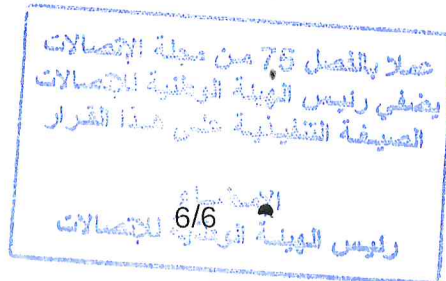 عملا بالفصل 75 من مجلة الاتصالات
يمضي رئيس الهيئة الوطنية للاتصالات
الصيغة التنفيذية على هذا القرار
الامضاء
6/6
رئيس الهيئة الوطنية للاتصالات